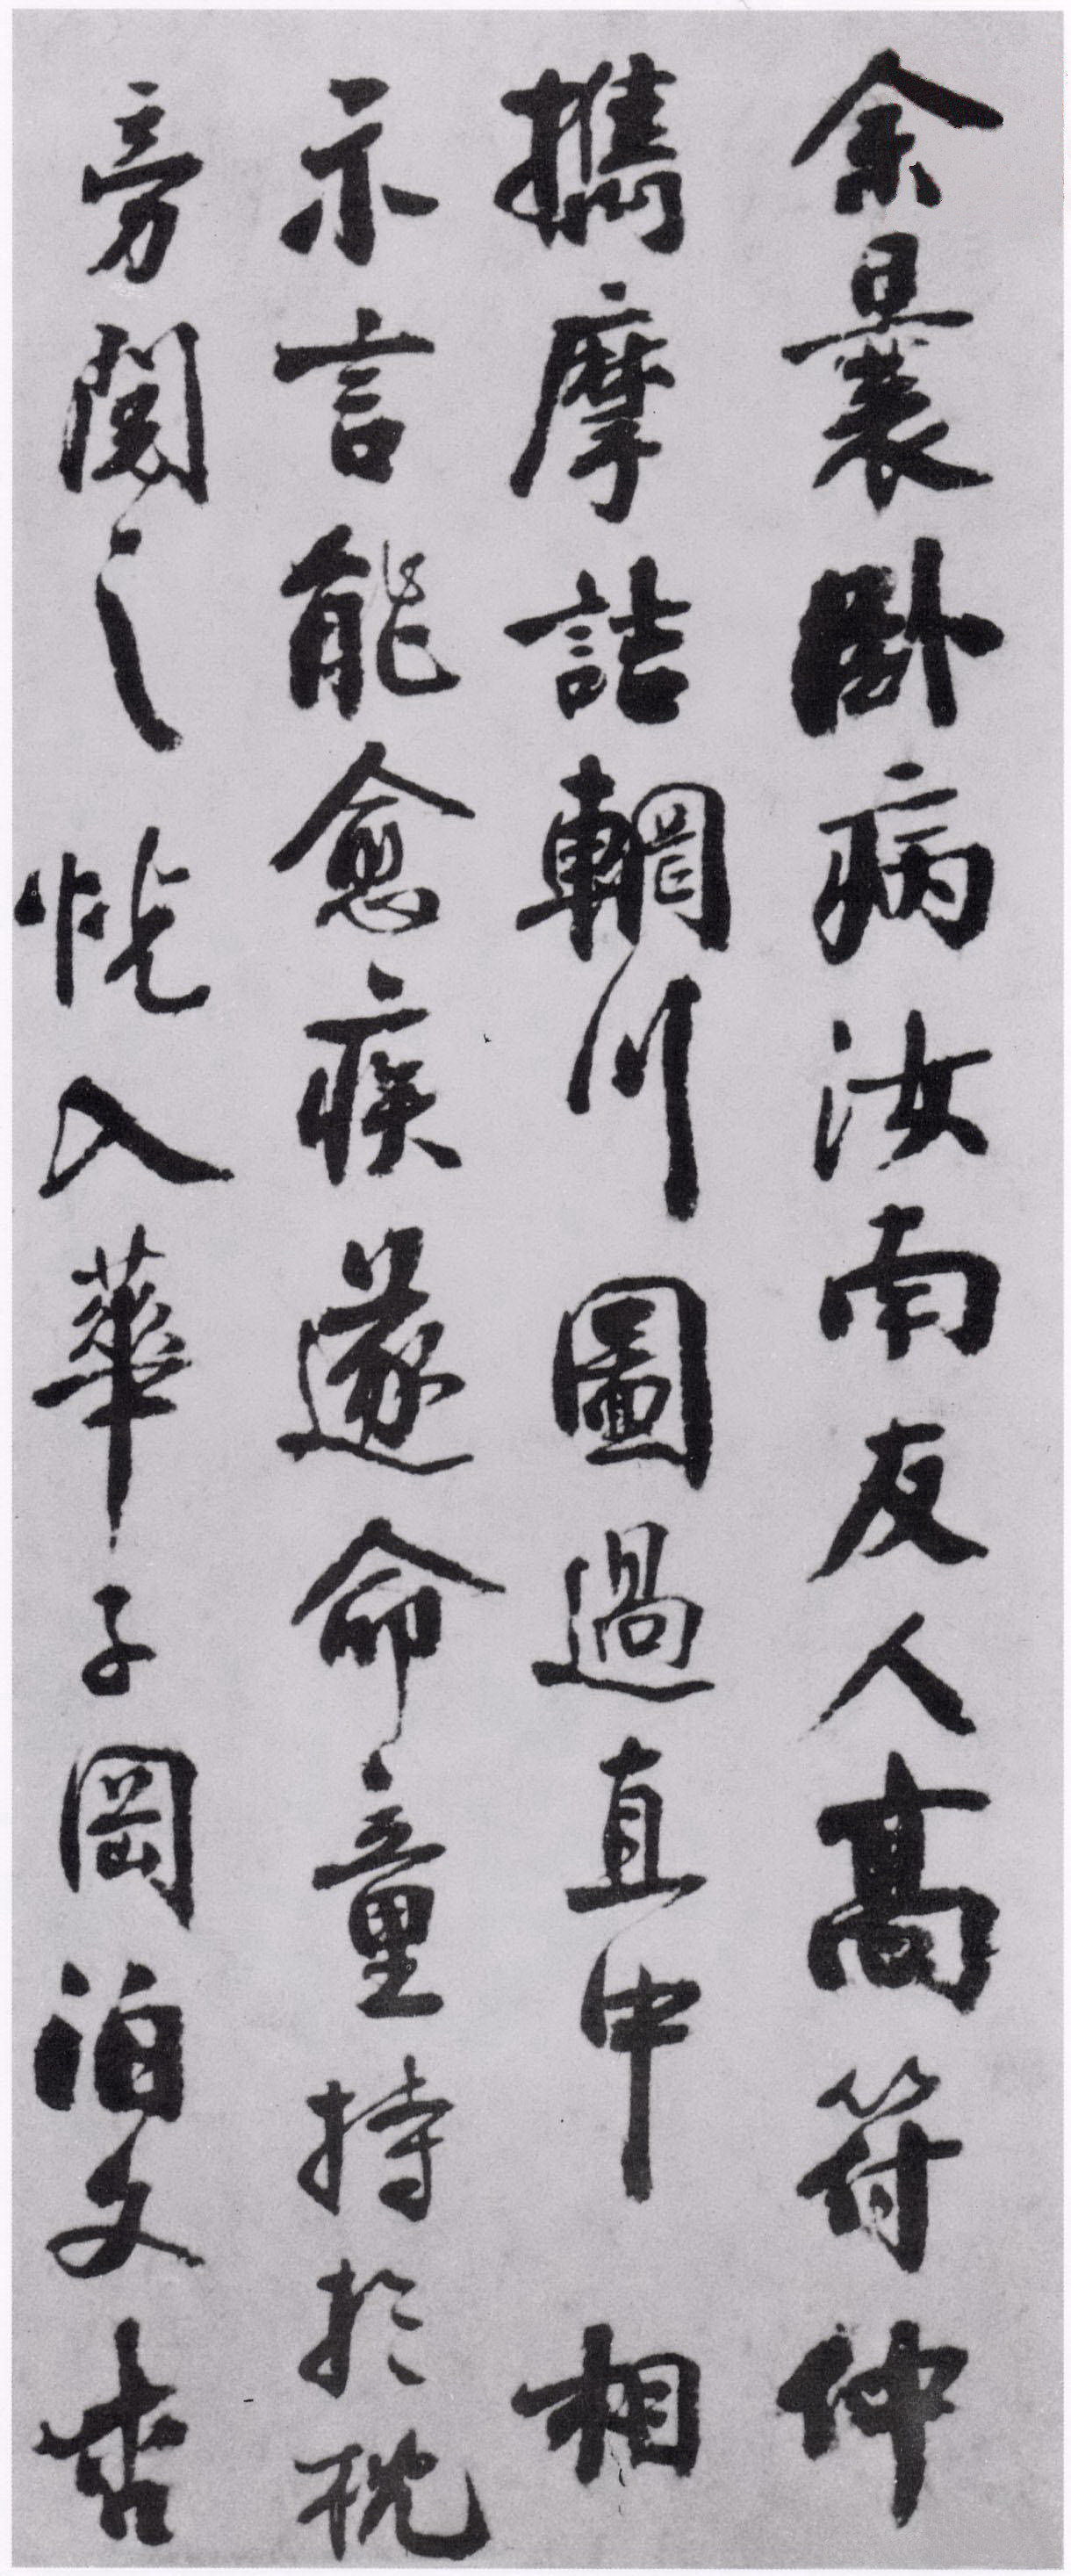 余曩卧病汝南友人髙符仲
攜摩詰輞川圖過直中相
示言能愈疾遂命童持於枕
旁閲之怳入華子岡泊文杏